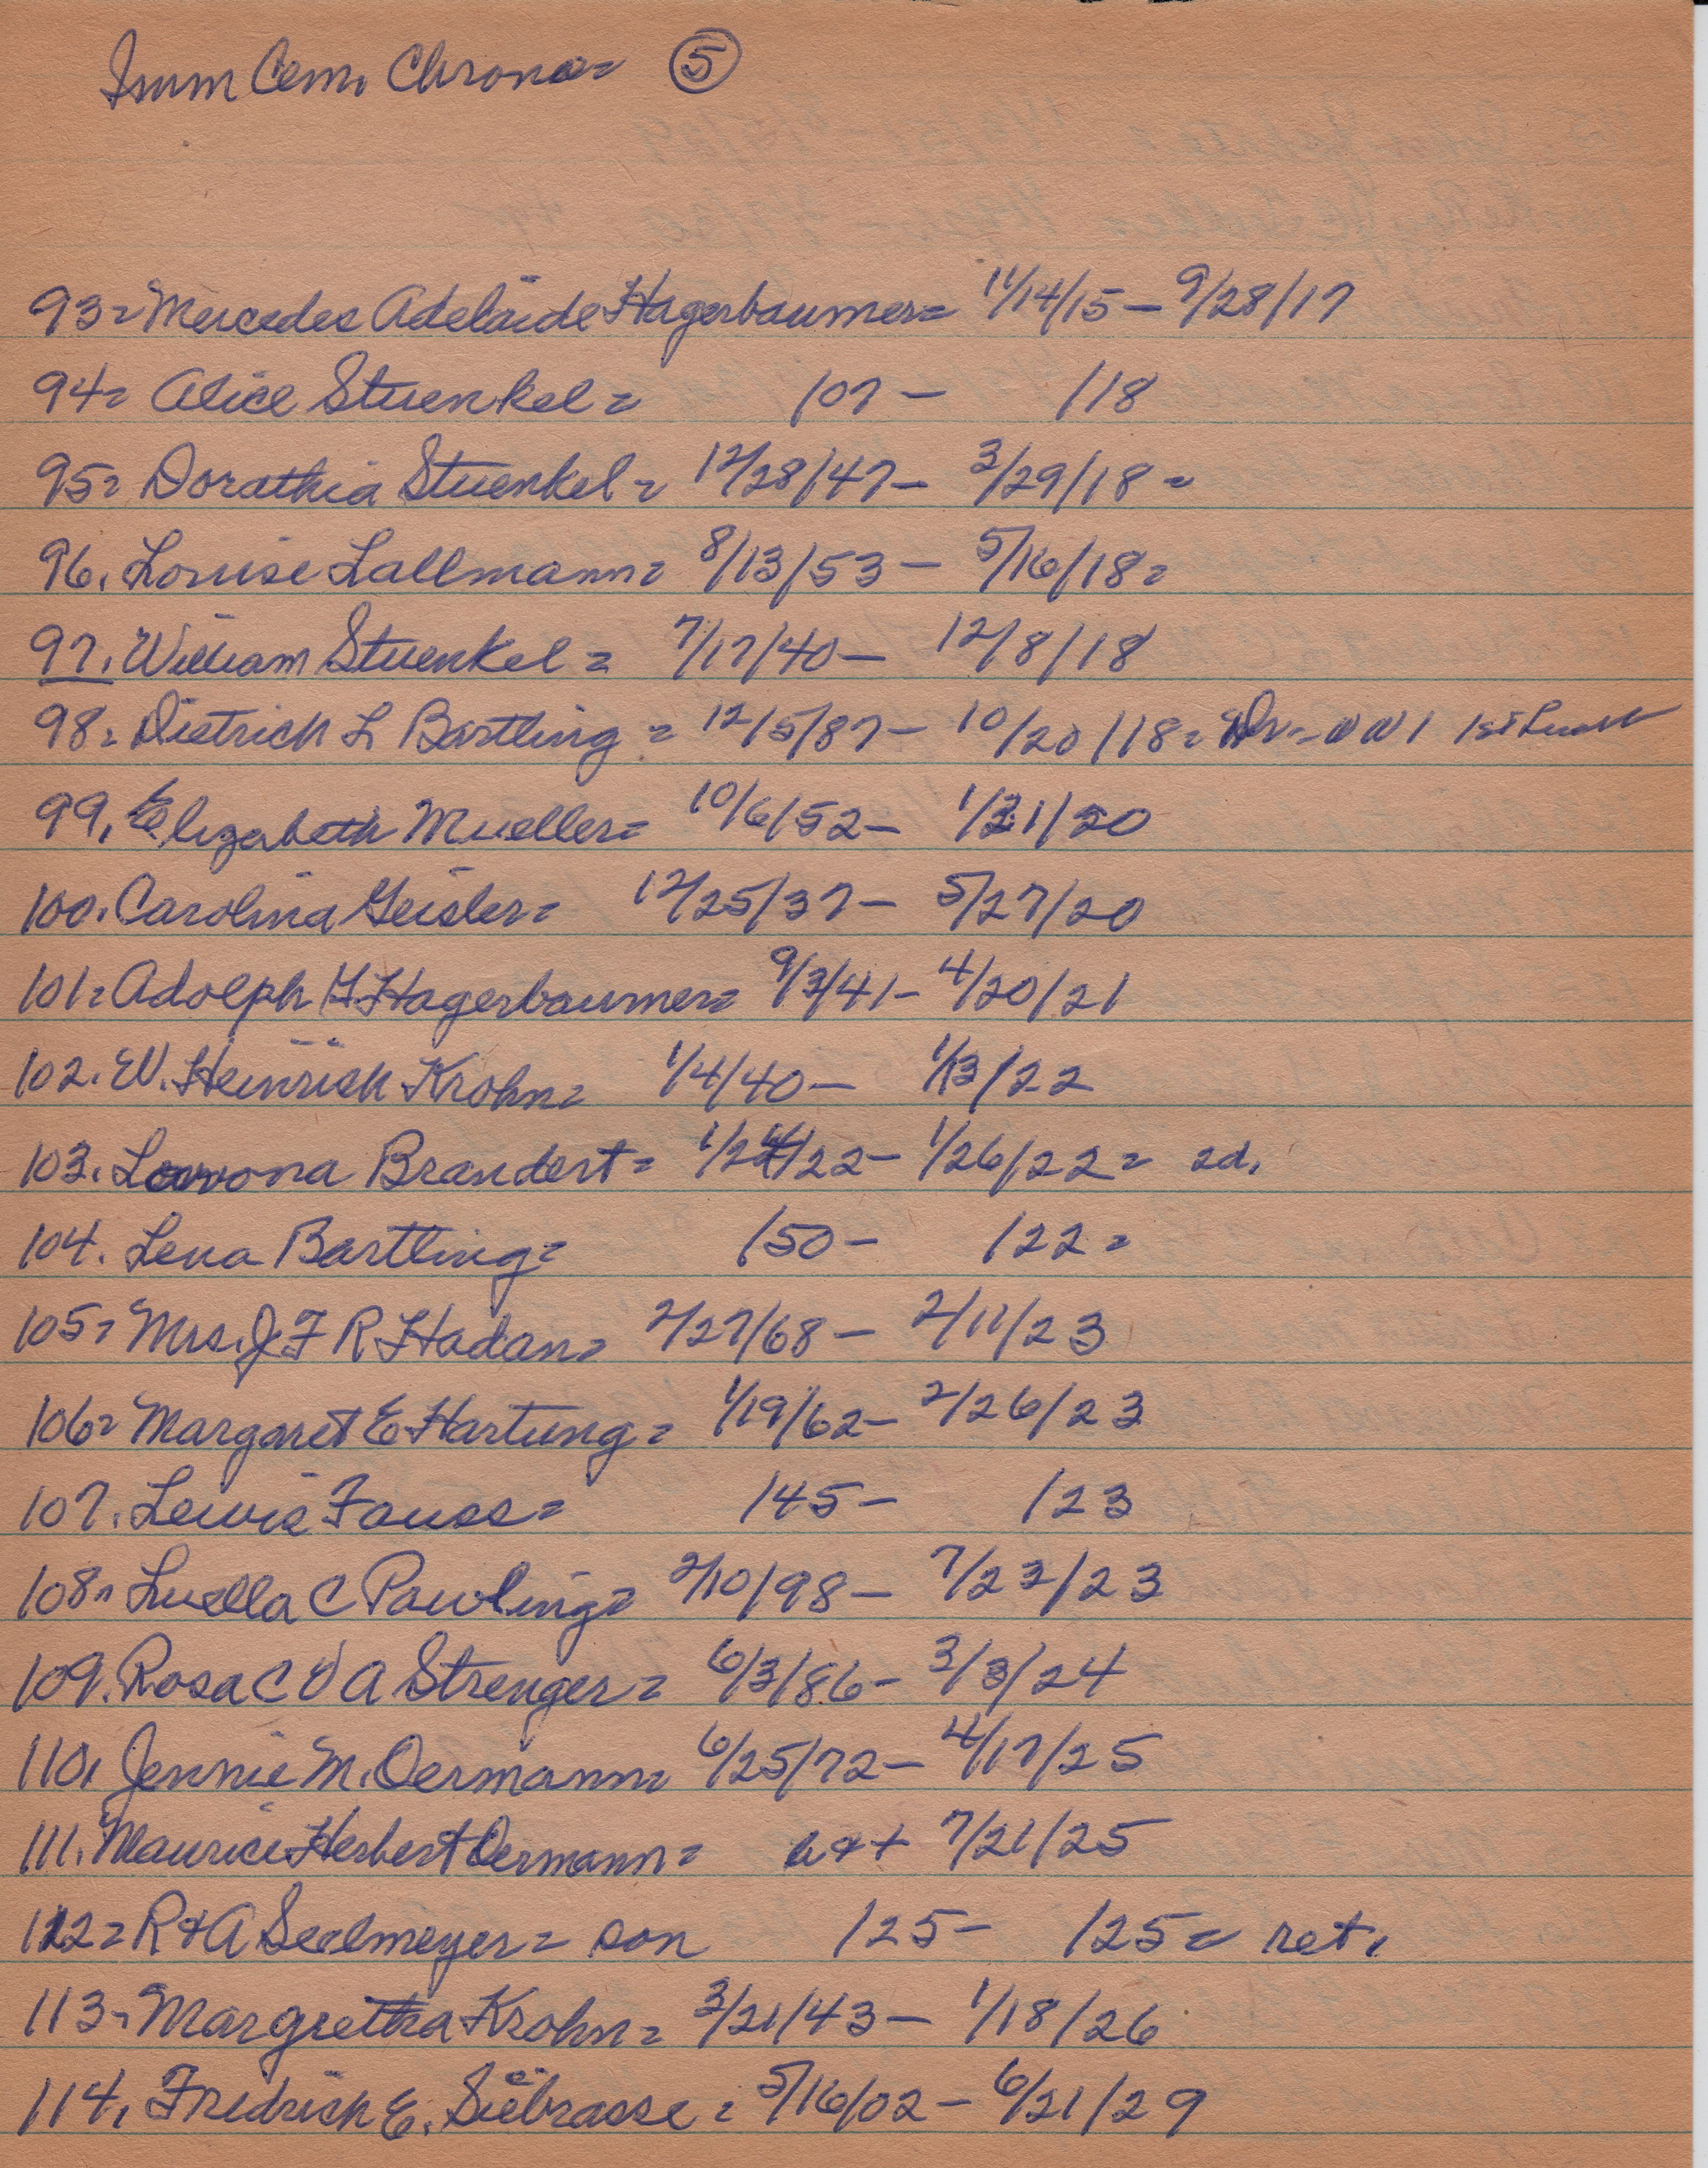 Imm Cem. Chrono= ⑤
93= Mercedes Adelaide Hagerbaumer= 11/14/15 - 9/28/17
94= Alice Stuenkel = /07 - /18
95= Dorathia Stuenkel = 12/28/47 - 3/29/18 =
96. Louise Lallmann= 8/13/53 - 5/16/18 =
97. William Stuenkel = 7/17/40 - 12/8/18
98= Dietrich L Bartling = 12/5/87 - 10/20/18 = WW1 1st
99. Elizabeth Mueller= 10/6/52 - 1/21/20
100. Carolina Geisler= 12/25/37 - 5/27/20
101= Adolph H Hagerbaumer= 9/3/41 - 4/20/21
102. W. Heinrich Krohn= 1/4/40 - 1/13/22
103. Brandert = 1/24/22 - 1/26/22 = 2d.
104. Lena Bartling= /50 - /22 =
105= Mrs. J F R Hadan= 2/27/68 - 2/11/23
106= Margaret E Hartung = 1/19/62 - 2/26/23
107. Lewis Fauss= /45 - /23
108= Luella C Pawling= 2/10/98 - 7/23/23
109. Rosa C W A Strenger = 6/3/86 - 3/3/24
110. Jennie M. Oermann= 6/25/72 - 4/17/25
111. Maurice Herbert Oermann = 7/21/25
112= R & A Seelmeyer= son /25 - /25 = ret.
113= Margretha Krohn = 3/21/43 - 1/18/26
114. Fredrich E. Siebrasse = 5/16/02 - 6/21/29